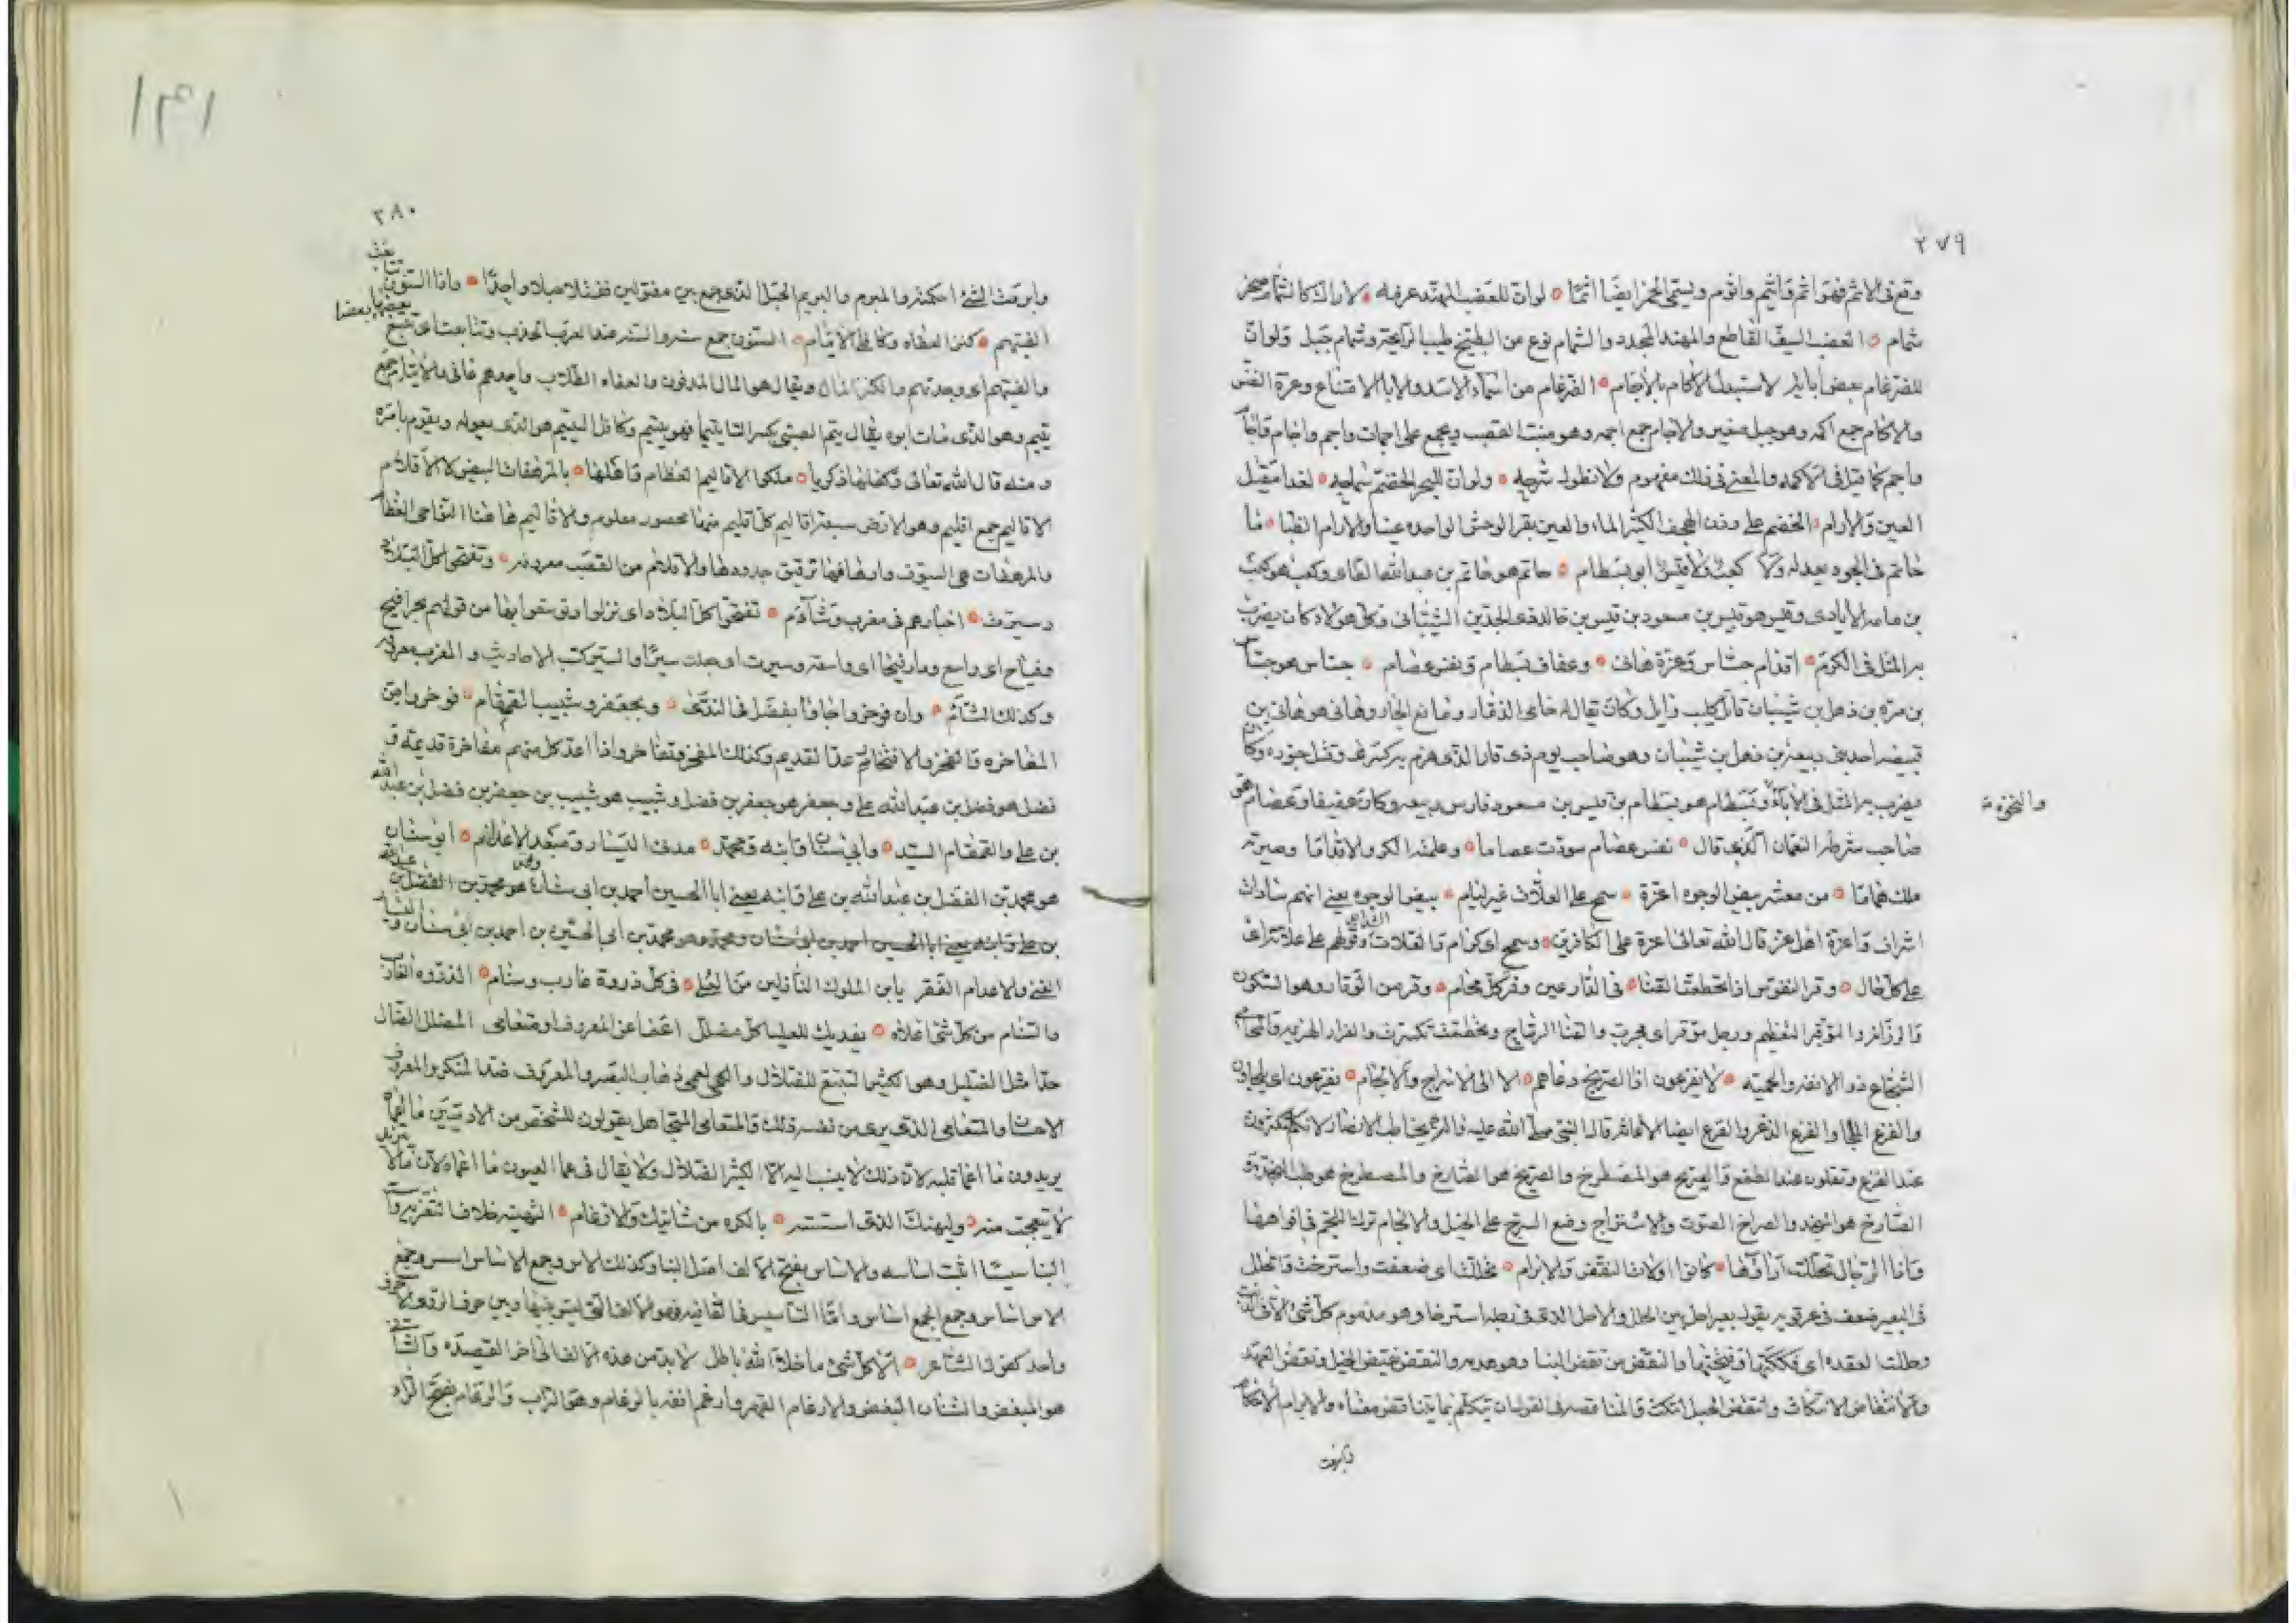 ٢٧٩
وقع فى الاثم فهو اثم واثيم واثوم ويسمى الخمر ايضا اثما لوان للعضب المهند عزمه لاراك كالشمام صخر
شمام العضب السيف القاطع والمهند المحدد والشمام نوع من البطيخ طيب الرايحة وشمام جبل ولوان
للضرغام بعض ابايه لاستبدل الاكام بالاجام الضرغام من اسماء الاسد والابا الامتناع وعزة النفس
والاكام جمع اكمه وهو جبل صغير والاجام جمع اجمه وهو منبت القصب ويجمع على اجمات واجم واجام
واجم كما قيل فى الاكمه والمعنى فى ذلك مفهوم ولا نطول شرحه ولوان للبحر الخضم
العين والارام الخضم على وزن الهجف الكثير الماء والعين بقر الوحش الواحده عينا والارام الظبا ما
حاتم فى الجود يعدله ولا كعب ولا قيس ابو بسطام حاتم هو حاتم بن عبدالله الطاى وكعب هو كعب
بن مامه الايادى وقيس هو قيس بن مسعود بن قيس بن خالد ذى الجدين الشيبانى وكل هولاء كان يضرب
به المثل فى الكرم اقدام جساس وعزة هانى وعفاف بسطام ونفس عصام جساس هو جساس
بن مره بن ذهل بن شيبان قاتل كليب وايل وكان يقال له حامى الذمار ومانع الجار وهانى هو هانى بن
قبيصه احد بنى ربيعة بن ذهل بن شيبان وهو صاحب يوم ذى قار الذى هزم فيه كسرى وقتل جنوده وكان
يضرب به المثل فى الاباء وبسطام هو بسطام بن قيس بن مسعود فارس ربيعه وكان عفيفا وعصام هو
والنخوة
صاحب شرطة النعمان الذى قال نفس عصام سودت عصاما وعلمته الكر والاقداما وصيرته
ملكا هماما من معشر بيض الوجوه اعزة سمح على العلات غير ليام بيض الوجوه يعنى انهم سادات
اشراف واعزة اهل عز قال الله تعالى اعزة على الكافرين وسمح اى كرام والعلات الشدايد وقولهم على علاته اى
على كل حال وقر النفوس اذا تحطمت القنا فى الدارعين وفر كل محام وقر من الوقار وهو السكون
والرزانه والموقر المعظم ورجل موقر اى مجرب والقنا الرماح وتحطمت تكسرت والفرار الهزيمه والمحامى
الشجاع ذو الانفه والحميه لا يفزعون اذا الصريخ دعاهم الا الى الاسراج والالجام يفزعون اى يلجاون
والفزع الملجا والفزع الذعر والفزع ايضا الاغاثه قال النبى صلى الله عليه واله يخاطب الانصار انكم لتكثرون
عند الفزع وتقلون عند الطمع والصريخ هو المصطرخ والصريخ هو الصارخ والمصطرخ هو طالب النجدة و
الصارخ هو المنجد والصراخ الصوت والاسراج وضع السرج على الخيل والالجام ترك اللجم فى افواهها
واذا الرجال تحللت اراؤها كانوا اولات النقض والابرام تحللت اى ضعفت واسترخت والحلل
فى البعير ضعف فى عرقوبيه يقول بعير احل بين الحلل والاحل الذى فى رجله استرخا وهو مذموم كل شى الا فى الذيب
وحللت العقده اى فككتها وفتحتها والنقض من نقض البنا وهو هدمه والنقض نقيض الحبل ونقض العهد
والانتقاض الانتكاث وانتقض الحبل انتكث والمناقصه فى القول ان يتكلم بما يتناقض معناه والابرام الاحكام
وابرمت

١٤١
٢٨٠
وابرمت الشئ احكمته والمبرم والبريم الحبل الذى جمع بين مفتولين ففتلا حبلا واحدا واذا السنون تتابعت
الفيتهم كنز العفاه وكافلى الايتام السنون جمع سنه والسنه عند العرب الجدب وتتابعت اى تبع بعضها بعضا
والفيتهم اى وجدتهم والكنز المال ويقال هو المال المدفون والعفاه الطلاب واحدهم عافى والايتام جمع
يتيم وهو الذى مات ابوه يقال يتم الصبى بكسر التا يتيما فهو يتيم وكافل اليتيم هو الذى يعوله ويقوم بامره
ومنه قال الله تعالى وكفلها زكريا ملكوا الاقاليم العظام واهلها بالمرهفات البيض كالاقلام
الاقاليم جمع اقليم وهو الارض سبعة اقاليم كل اقليم منها محصور معلوم والاقاليم هاهنا النواحى العظام
والمرهفات هى السيوف وارهافها ترقيق حدودها والاقلام من القصب معروفه وتفتحوا كل البلاد
وسيرت اخبارهم فى مغرب وشآم تفتحوا كل البلاد اى نزلوا وتوسعوا بها من قولهم بحر افيح
وفياح اى واسع ودار فيحا اى واسعه وسيرت اى جعلت سيرا والسير كتب الاحاديث والمغرب معروف
وكذلك الشآم وان فوخروا جاؤا بفضل فى الندى وبجعفر وشبيب القمقام فوخروا من
المفاخره والفخر والافتخار عد القديم وكذلك المفخر وتفاخروا اذا اعد كل منهم مفاخرة قديمه و
فضل هو فضل بن عبدالله على وجعفر هو جعفر بن فضل وشبيب هو شبيب بن جعفر بن فضل بن عبدالله
بن على والقمقام السيد وابى سنان وابنه ومحمد هدف اليسار ومبعد الاعدام ابو سنان
هو محمد بن الفضل بن عبدالله بن على وابنه يعنى ابا الحسين احمد بن ابى سنان هو محمد بن الفضل بن عبدالله
بن على وابنه يعنى ابا الحسين احمد بن ابى سنان ومحمد هو محمد بن ابى الحسين بن احمد بن ابى سنان واليسار
الغنى والاعدام الفقر يابن الملوك النازلين من العلى فى كل ذروة غارب وسنام الذروه الغارب
والسنام من كل شى اعلاه يفديك للعليا كل مضلل اعمى عن المعروف او متعامى المضلل الضال
جدا مثل الضليل وهو الكثير التتبع للضلال والعمى ذهاب البصر والمعروف ضد المنكر والمعروف
الاحسان والمتعامى الذى يرى من نفسه ذلك والمتعامى المتجاهل يقولون للشخص من الادميين ما اعماه
يريدون ما اعما قلبه لان ذلك لا ينسب اليه الا الكثير الضلال ولا يقال فى عما العيون ما اعماه لان مالا يتزيد
لا يتعجب منه وليهنك الذى اسسته بالكره من شانيك والارغام التهنيه خلاف التعزيه و
البنا اسسته اثبت اساسه والاساس بفتح الالف اصل البنا وكذلك الاس وجمع الاساس اسس وجمع
الاس اساس وجمع الجمع اساس واما التاسيس فى القافيه فهو الالف التى ليس بينها وبين حرف الروى الا حرف
واحد كقول الشاعر الا كل شئ ما خلا الله باطل لا بد من هذه الالف الى اخر القصيده والشانى
هو المبغض والشنان البغض والارغام القهر وارغم انفه بالرغام وهو التراب والرغام بفتح الراء